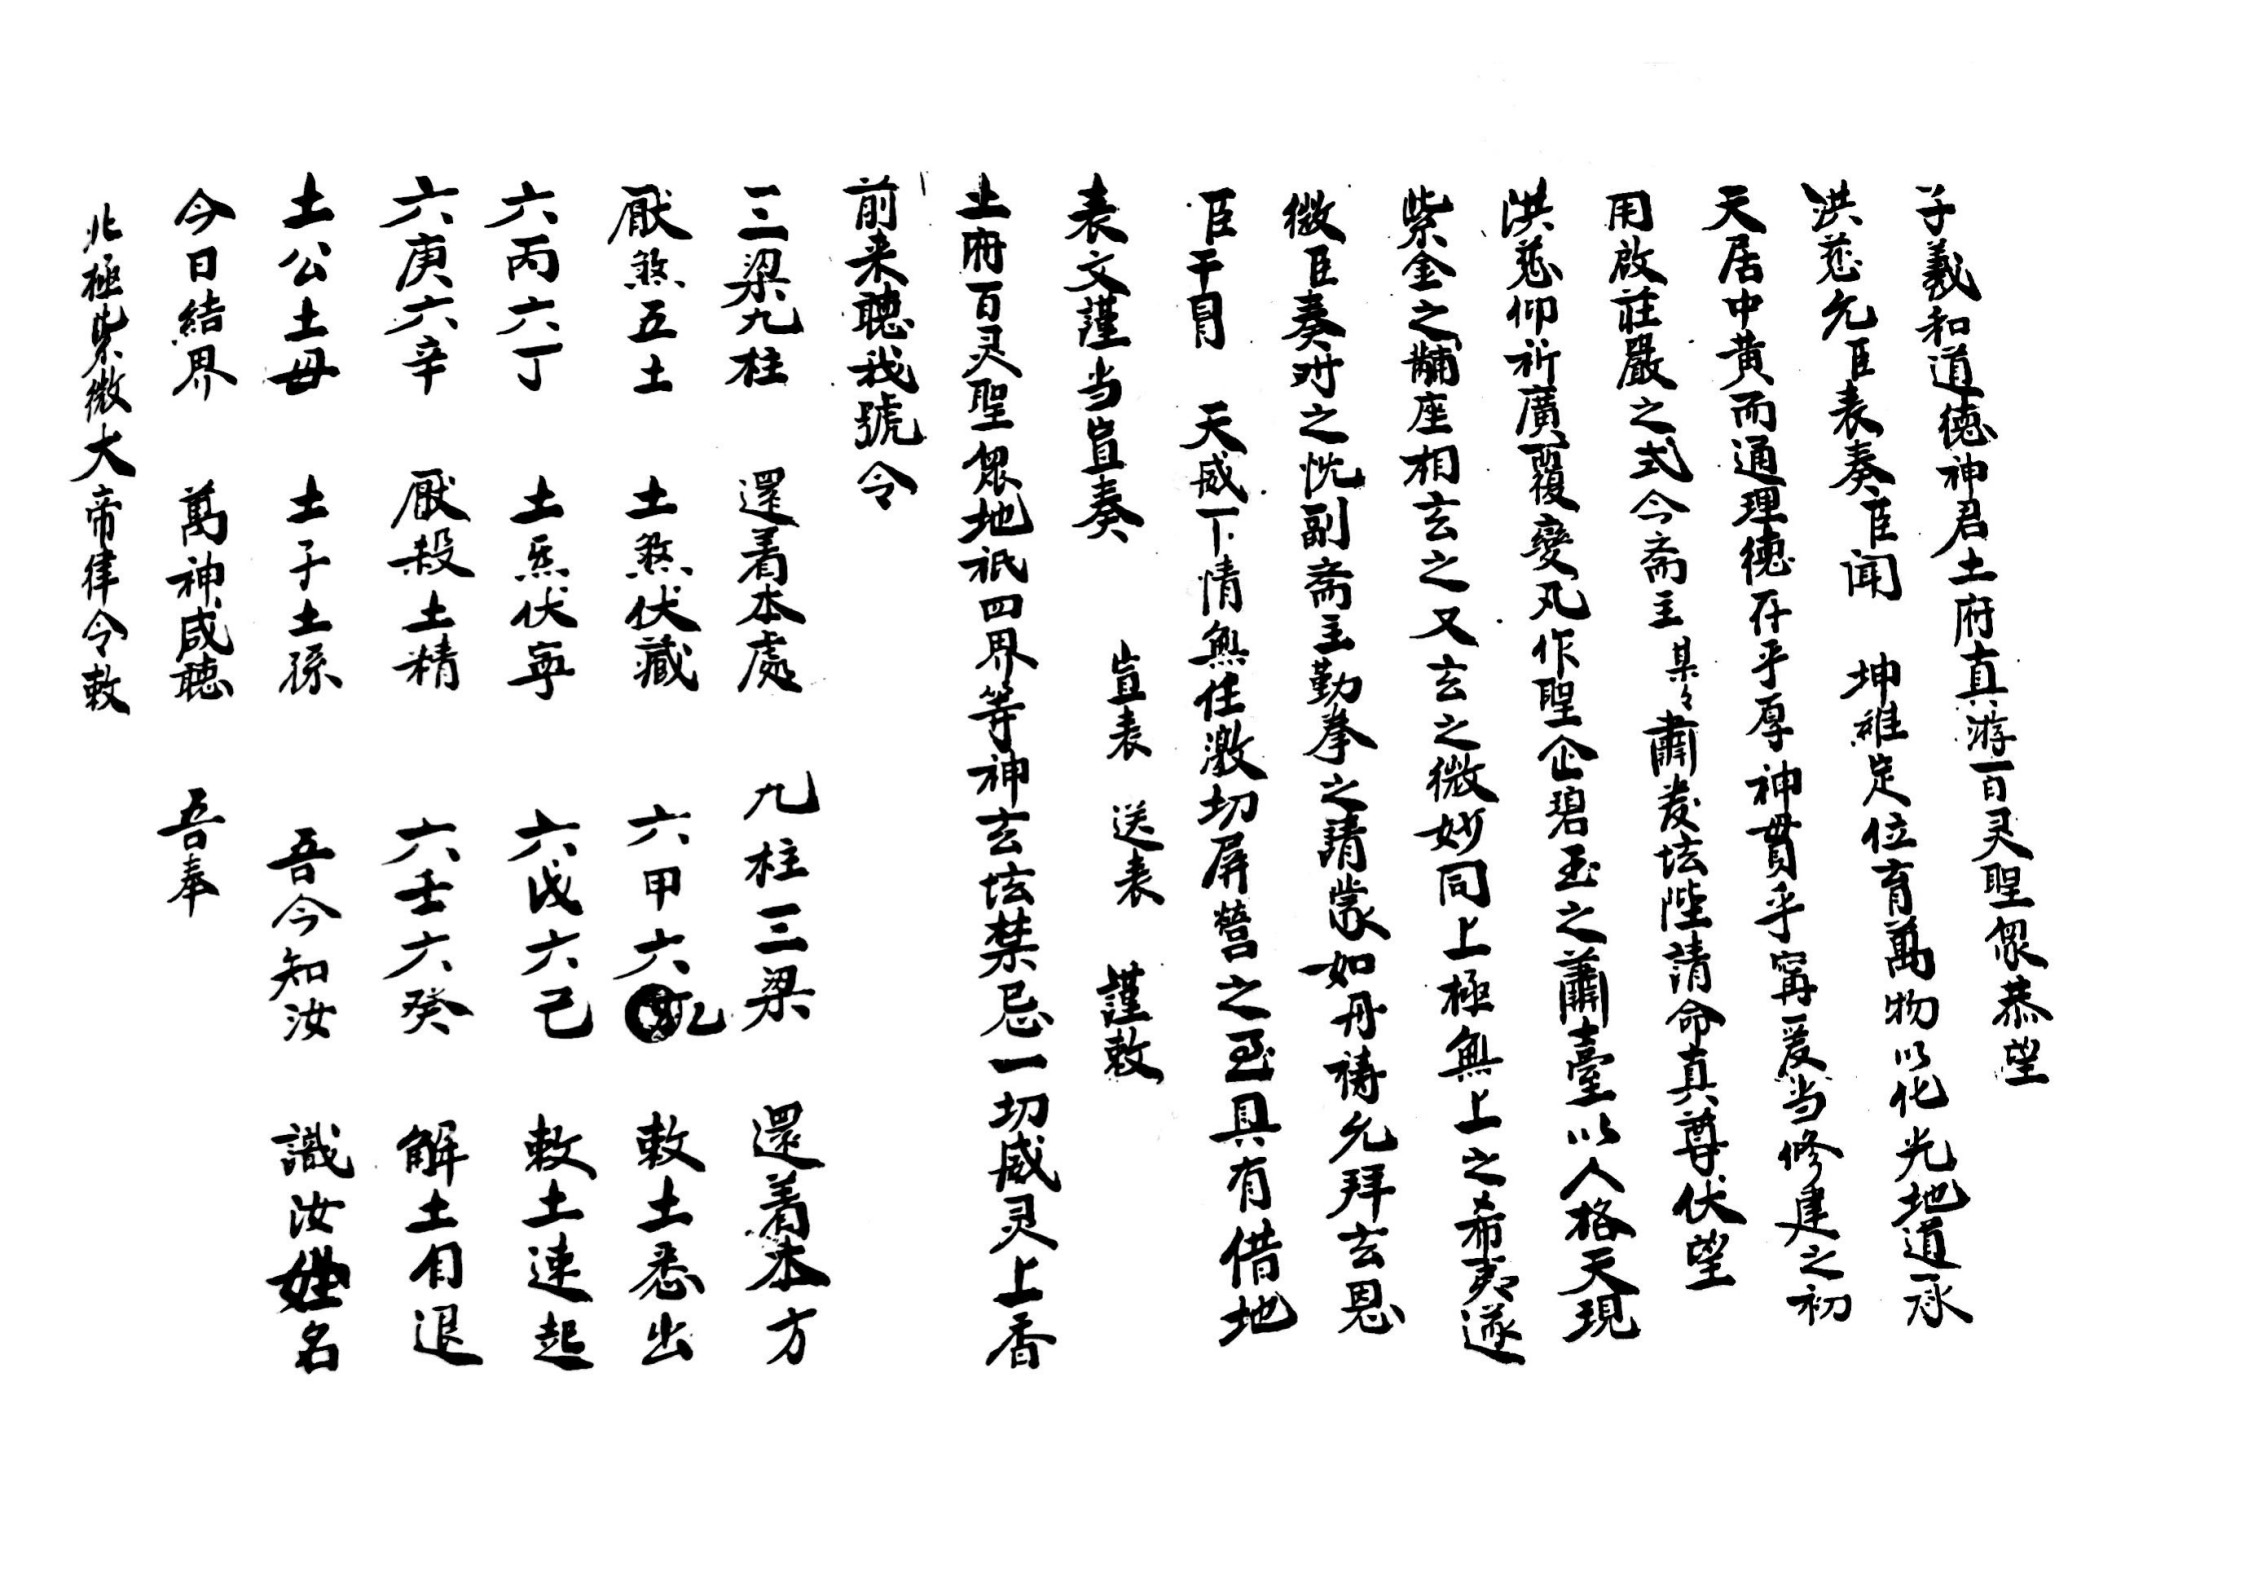 子義和道德神君土府真游百灵聖眾恭望
洪慈允臣表奏臣闻 坤維定位育萬物以化光地道承
天居中黄而通理德存乎厚神贯乎寗爰当修建之初
用啟莊嚴之式今斋主某々肅发坛陛請命真尊伏望
洪慈仰祈廣覆變凡作聖企碧玉之蕭臺以人格天現
紫金之黼座相玄之又玄之微妙同上極無上之希夷遂
微臣奏对之忱副斋主勤拳之請蒙如丹禱允拜玄恩
臣干冒 天威下情無任激切屏營之至具有借地
表文謹当宣奏 宣表 送表 謹敕
土府百灵聖眾地祇四界等神玄坛禁忌一切威灵上香
前来聴我號令
三梁九柱 還着本處 九柱三梁 還着本方
厭煞五土 土煞伏藏 六甲六乙 敕土悉出
六丙六丁 土炁伏寧 六戊六己 敕土速起
六庚六辛 厭殺土精 六壬六癸 解土自退
土公土母 土子土孫 吾今知汝 識汝姓名
今日結界 萬神咸聴 吾奉
北極紫微大帝律令敕